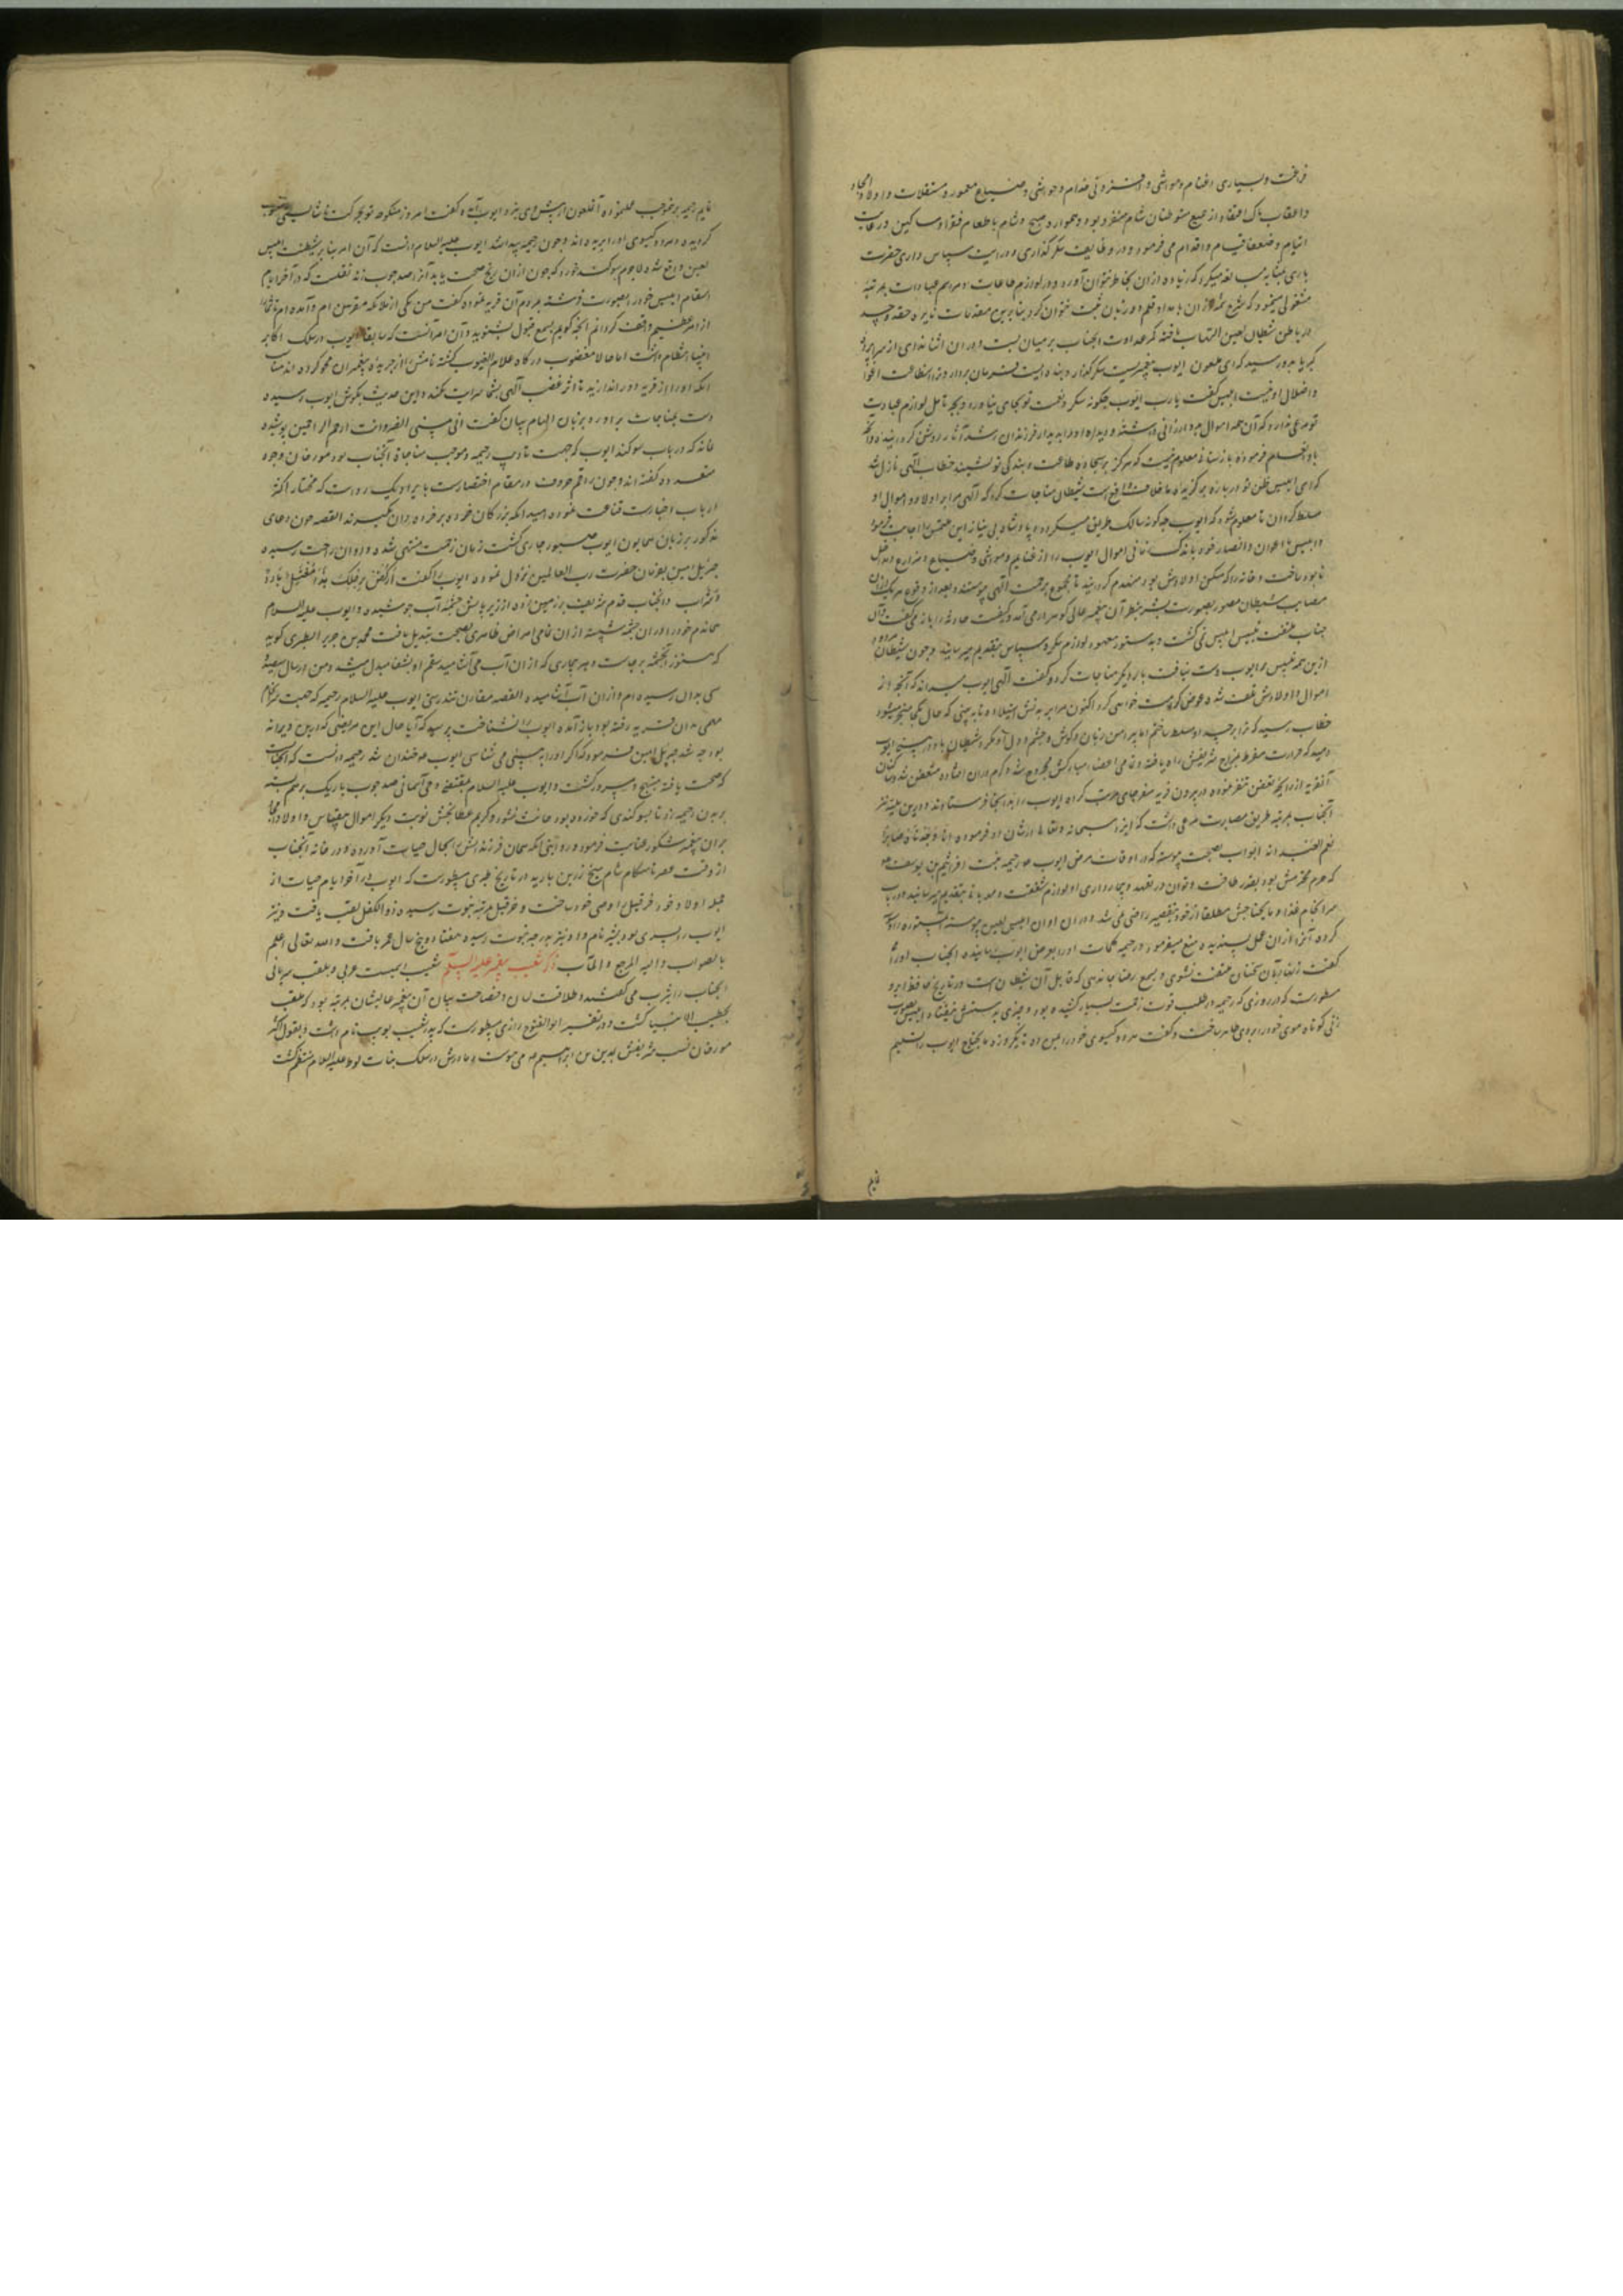 فرخت و بسیاری اغنام و مواشی و خدام و حواشی و ضیاع معمور و مستغلات و اولاد امجاد
و اعقاب پاک اعتقاد از جمیع متوطنان شام منفرد بود و هموار در صبح و شام باطعام فقرا و مساکین و رعایت
ایتام و ضعفا قیام و اقدام می فرمود و در وظایف شکر گذاری و مراسم سپاس داری حضرت
باری مبالغه میکرد که زیاده از آن بخاطر نتوان آورد و در لوازم طاعات و مراسم عبادات بمرتبه
مشغولی مینمود که شرح شمه از آن بامداد قلم و زبان ثبت نتوان کرد بنابرین مقدمات نایره حقد و حسد
در باطن شیطان لعین التهاب یافته کمر عداوت آنجناب بر میان بست و در آن اثنا ندای از سرادق
کبریا بدو رسید که ای ملعون ایوب پیغمبریست شکر گذار و بنده ایست فرمان بردار و ترا استطاعت اغوا
و اضلال او نیست ابلیس گفت یا رب ایوب چگونه شکر نعمت تو بجای نیاورد و بچه تامل لوازم عبادت
تو مرعی ندارد که آن همه اموال بدو ارزانی داشته و دیده او را بدیدار فرزندان رشد آثار روشن گردانیده و اگر
باو انعام فرموده بازستانی معلوم نیست که هرگز بر سجاده طاعت و بندگی تو نشیند خطاب الهی نازل شد
که ای ابلیس ظن تو درباره برگزیده ما خلاف واقع است شیطان مناجات کرد که الهی مرا بر اولاد و اموال او
مسلط گردان تا معلوم شود که ایوب چگونه سالک طریق شکر بوده پادشاه بی نیاز این ملتمس را اجابت فرمود
و ابلیس با اعوان و انصار خود باندک زمانی اموال ایوب را از غنایم و مواشی و ضیاع و مزارع و نخل
نابود ساخت و خانه را که مسکن اولادش بود منهدم گردانید تا مجموع برحمت الهی پیوستند و بعد از وقوع هر یک ازین
مصایب شیطان مصور بصورت بشر بنظر آن پیغمبر عالی گوهر درمی آمد و کیفیت حادثه را باز می گفت و آن
جناب ملتفت تلبیس ابلیس نمی گشت و بدستور معهود لوازم شکر و سپاس بتقدیم میرسانید و چون شیطان مردود
ازین همه تلبیس بر ایوب دست نیافت بار دیگر مناجات کرد و گفت الهی ایوب میداند که آنچه از
اموال و اولادش تلف شده عوض کرامت خواهی کرد اکنون مرا بر بدنش استیلا ده تا به بینی که حال بکجا منجر میشود
خطاب رسید که ترا بر جسد او مسلط ساختم اما پیرامن زبان و گوش و چشم و دل او مگرد شیطان باد در بینی ایوب
دمید که حرارت مفرط بمزاج شریفش راه یافت و تمامی اعضاء مبارکش مجروح شد و کرم در آن افتاده متعفن شد و ساکنان
آنقریه از رایحه تعفن تنفر نموده در بیرون قریه مقر جای مرتب کرده ایوب را بدانجا فرستادند و درین بلیه نیز
آنجناب بمرتبه طریق مصابرت مرعی داشت که ایزد سبحانه و تعالی در شان او فرموده انا وجدناه صابرا
نعم العبد انه اواب بصحت پیوسته که در اوقات مرض ایوب رحیمه بنت افرائیم بن یوسف
که حرم محترمش بود بقدر طاقت و توان در تعهد و بیمارداری او لوازم شفقت و مهربانی بتقدیم میرسانید و در باب
سرانجام غذا و مایحتاجش مطلقا از خود بتقصیر راضی نمی شد و در آن اوان ابلیس لعین پیوسته آن مستوره را وسوسه
کرده آنرا از آن عمل پسندیده منع میفرمود و رحیمه کلمات او را بعرض ایوب رسانیده آنجناب او را
گفت زنهار بآن سخنان ملتفت نشوی و بسمع رضا جا ندهی که قایل آن شیطان است و در تاریخ حافظ ابرو
مسطورست که در روزی که رحیمه در طلب قوت زحمت بسیار کشیده بود و چیزی بدستش نیفتاده ابلیس بصورت
زنی کوتاه موی خود را بر وی ظاهر ساخت و گفت هر دو گیسوی خود را بمن ده تا یک روزه مایحتاج ایوب را تسلیم
نایم
نمایم رحیمه بر موجب عمل نموده آنملعون از پیش وی نزد ایوب آمد و گفت امروز منکوحه تو بجرکت ناشایسته منسوب
گردیده و هر دو گیسوی او را بریده اند و چون رحیمه پیدا شد ایوب علیه السلام دانست که آن امر بنا بر شیطنت ابلیس
لعین واقع شده لاجرم سوگند خورد که چون از آن رنج صحت یابد آنرا صد چوب زند نقلست که در آخر ایام
اسقام ابلیس خود را بصورت فرشته بمردم آن قریه نموده گفت من یکی از ملائکه مقربین ام و آمده ام تا شما را
از امر عظیم واقف گردانم آنچه گویم بسمع قبول بشنوید و آن امر آنست که سابقا ایوب در سلک اکابر
انبیا انتظام داشت اما حالا مغضوب درگاه علام الغیوب گشته نامش را از جریده پیغمبران محو کرده اند مناسب
آنکه او را از قریه دور اندازید تا اثر غضب الهی بشما سرایت نکند و این حدیث بگوش ایوب رسیده
دست بمناجات برآورد و بزبان الهام بیان گفت انی مسنی الضر وانت ارحم الراحمین پوشیده
نماند که در باب سوگند ایوب که جهت تادیب رحیمه و موجب مناجاة آنجناب بود مورخان وجوه
متعدده گفته اند و چون راقم حروف در مقام اختصارست بایراد یک روایت که مختار اکثر
ارباب اخبارست قناعت نموده امید آنکه بزرگان خورده بر خورده دان نگیرند القصه چون دعای
مذکور بر زبان همایون ایوب صبور جاری گشت زمان زحمت منتهی شده و اوان راحت رسیده
جبریل امین بفرمان حضرت رب العالمین نزول نموده ایوب را گفت ارکض برجلک هذا مغتسل بارد
وشراب و آنجناب قدم شریف بر زمین زده از زیر پایش چشمه آب جوشیده و ایوب علیه السلام
هماندم خود را در آن چشمه شسته از آن تمامی امراض ظاهری بصحت تبدیل یافت محمد بن جریر الطبری گوید
که هنوز آنچشمه بر جاست و هر بیماری که از آن آب می آشامید سقم او بشفا مبدل میشد و من در سال سبعین
سی بدان رسیده ام و از آن آب آشامیده القصه مقارن تندرستی ایوب علیه السلام رحیمه که جهت سرانجام
مهمی بدان قریه رفته بود باز آمده ایوب را نشناخت پرسید که آیا حال این مریضی که درین ویرانه
بود چه شد جبریل امین فرمود که اگر او را به بینی می شناسی ایوب خندان شد رحیمه دانست که آنجناب
که صحت یافته مبتهج و مسرور گشت و ایوب علیه السلام بمقتضی وحی آسمانی صد چوب باریک بر هم بسته
بر بدن رحیمه زد تا بسوگندی که خورده بود حانث نشود و کریم عطا بخش نوبت دیگر اموال بیقیاس و اولاد امجاد
بدان پیغمبر شکور عنایت فرمود و روایتی آنکه همان فرزندانش را بحال حیات آورده و در خانه آنجناب
از وقت عصر تا هنگام شام میخ زرین بارید در تاریخ طبری مسطورست که ایوب در آخر ایام حیات از
جمله اولاد خود حزقیل را وصی خود ساخت و حزقیل بمرتبه نبوت رسیده ذو الکفل لقب یافت و نیز
ایوب را پسری بود بشر نام و او نیز بدرجه نبوت رسیده هفتاد و پنج سال عمر یافت والله تعالی اعلم
بالصواب والیه المرجع والمآب ذکر شعیب پیغمبر علیه السلام شعیب اسمیست عربی و بلغت سریانی
آنجناب را یثرب می گفتند و طلاقت لسان و فصاحت بیان آن پیغمبر عالیشان بمرتبه بود که ملقب
بخطیب الانبیا گشت و در تفسیر ابو الفتوح رازی مسطورست که پدر شعیب یوبب نام داشت و بقول اکثر
مورخان نسب شریفش بمدین بن ابراهیم می پیوست و مادرش در سلک بنات لوط علیه السلام منتظم گشت